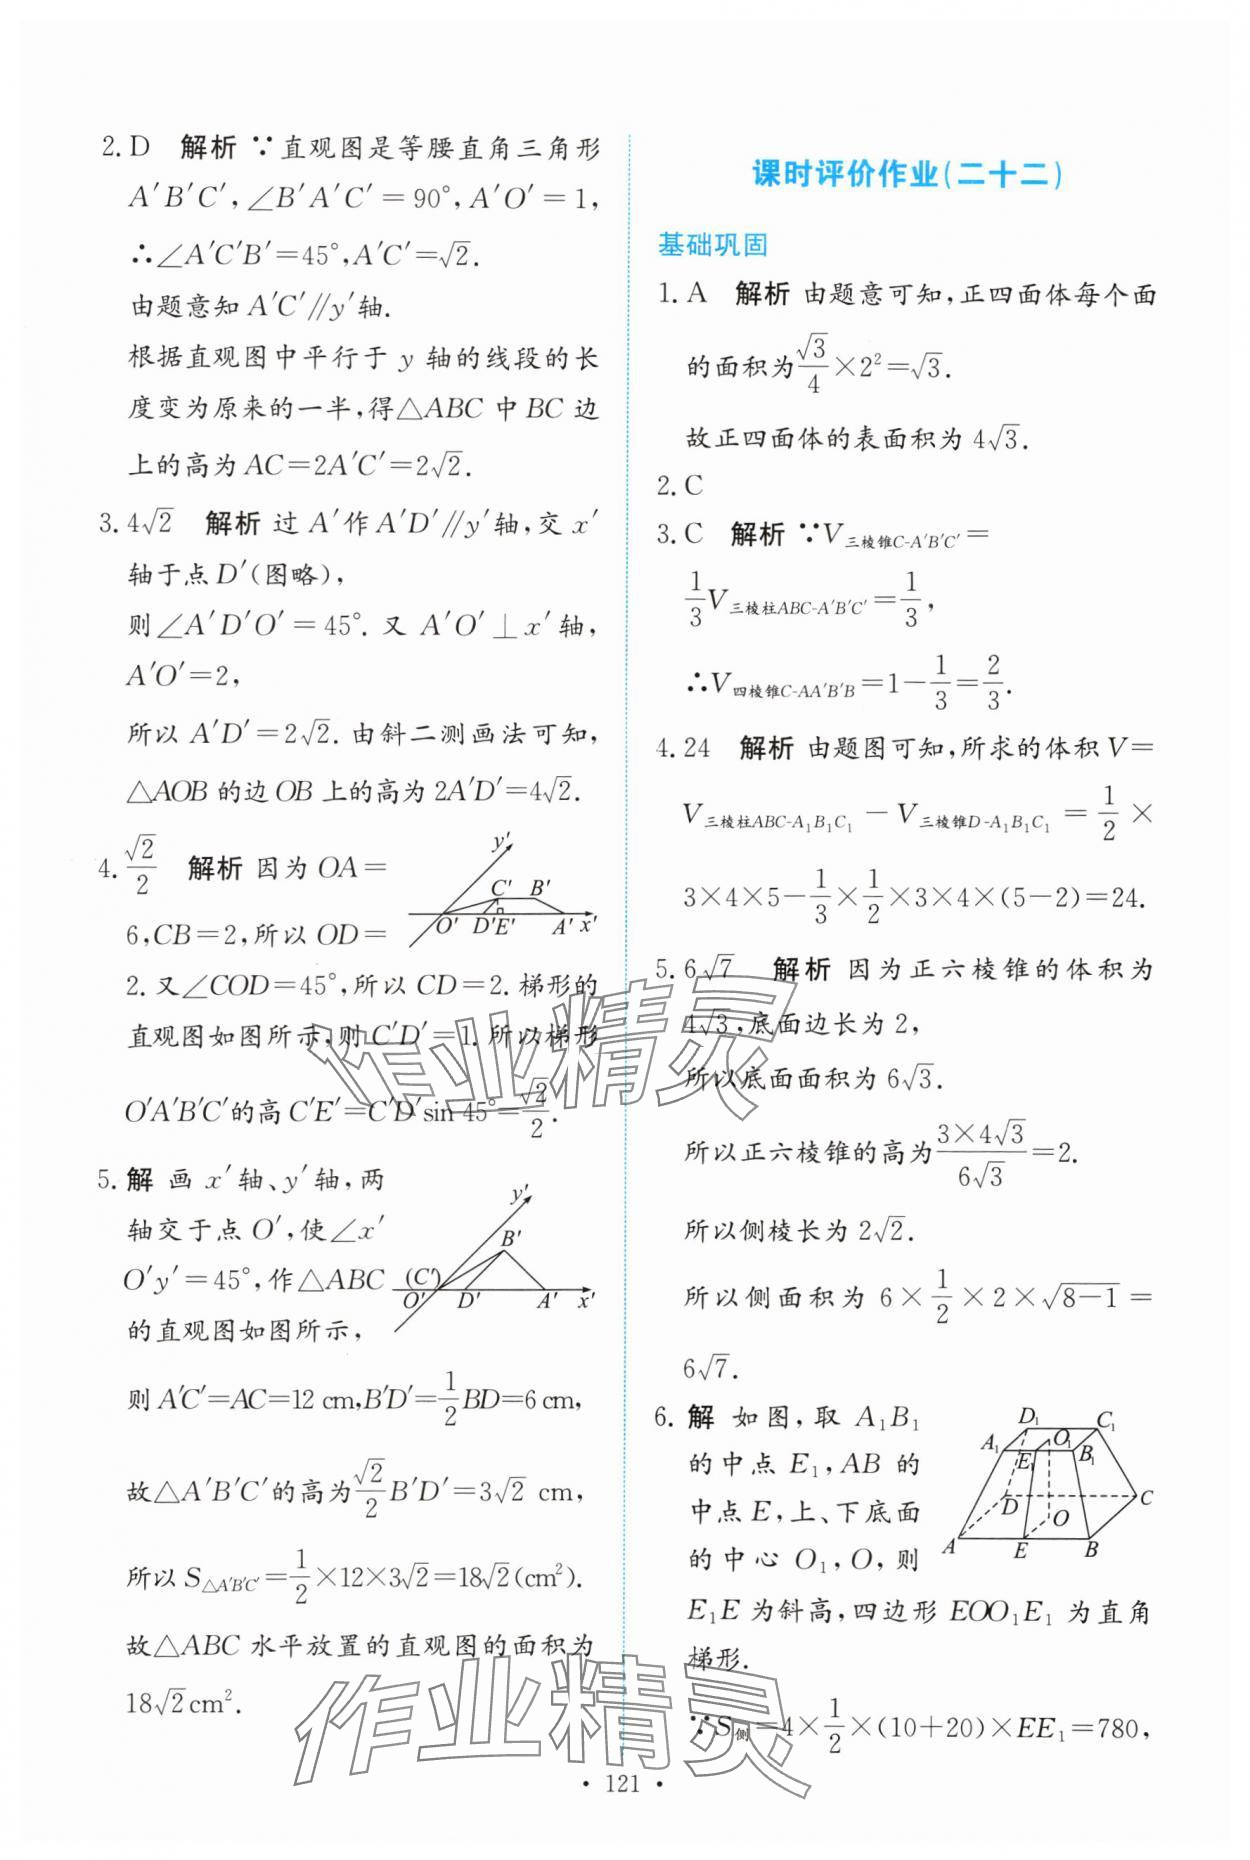 2. D 解析 ∵直观图是等腰直角三角形
A′B′C′,∠B′A′C′=90°,A′O′=1,
∴∠A′C′B′=45°,A′C′=√2.
由题意知 A′C′∥y′轴.
根据直观图中平行于 y 轴的线段的长
度变为原来的一半,得△ABC 中 BC 边
上的高为 AC=2A′C′=2√2.
3. 4√2 解析 过 A′作 A′D′∥y′轴,交 x′
轴于点 D′(图略),
则∠A′D′O′=45°. 又 A′O′⊥x′轴,
A′O′=2,
所以 A′D′=2√2. 由斜二测画法可知,
△AOB 的边 OB 上的高为 2A′D′=4√2.
4. √2/2 解析 因为 OA=
6,CB=2,所以 OD=
2. 又∠COD=45°,所以 CD=2. 梯形的
直观图如图所示,则 C′D′=1. 所以梯形
O′A′B′C′的高 C′E′=C′D′sin 45°=√2/2.
y′
C′ B′
O′ D′E′ A′ x′
5. 解 画 x′轴、y′轴,两
轴交于点 O′,使∠x′
O′y′=45°,作△ABC
的直观图如图所示,
y′
B′
(C′)
O′ D′ A′ x′
则 A′C′=AC=12 cm,B′D′=1/2BD=6 cm,
故△A′B′C′的高为√2/2 B′D′=3√2 cm,
所以 S△A′B′C′=1/2×12×3√2=18√2(cm²).
故△ABC 水平放置的直观图的面积为
18√2cm².
课时评价作业(二十二)
基础巩固
1. A 解析 由题意可知,正四面体每个面
的面积为√3/4×2²=√3.
故正四面体的表面积为 4√3.
2. C
3. C 解析 ∵V三棱锥C-A′B′C′=
1/3V三棱柱ABC-A′B′C′=1/3,
∴V四棱锥C-AA′B′B=1-1/3=2/3.
4. 24 解析 由题图可知,所求的体积 V=
V三棱柱ABC-A₁B₁C₁-V三棱锥D-A₁B₁C₁=1/2×
3×4×5-1/3×1/2×3×4×(5-2)=24.
5. 6√7 解析 因为正六棱锥的体积为
4√3,底面边长为 2,
所以底面面积为 6√3.
所以正六棱锥的高为(3×4√3)/(6√3)=2.
所以侧棱长为 2√2.
所以侧面积为 6×1/2×2×√(8-1)=
6√7.
6. 解 如图,取 A₁B₁
的中点 E₁,AB 的
中点 E,上、下底面
的中心 O₁,O,则
E₁E 为斜高,四边形 EOO₁E₁ 为直角
梯形.
D₁ C₁
A₁ O₁
E₁ B₁
D C
O
A E B
∵S侧=4×1/2×(10+20)×EE₁=780,
作业精灵
作业精灵
· 121 ·